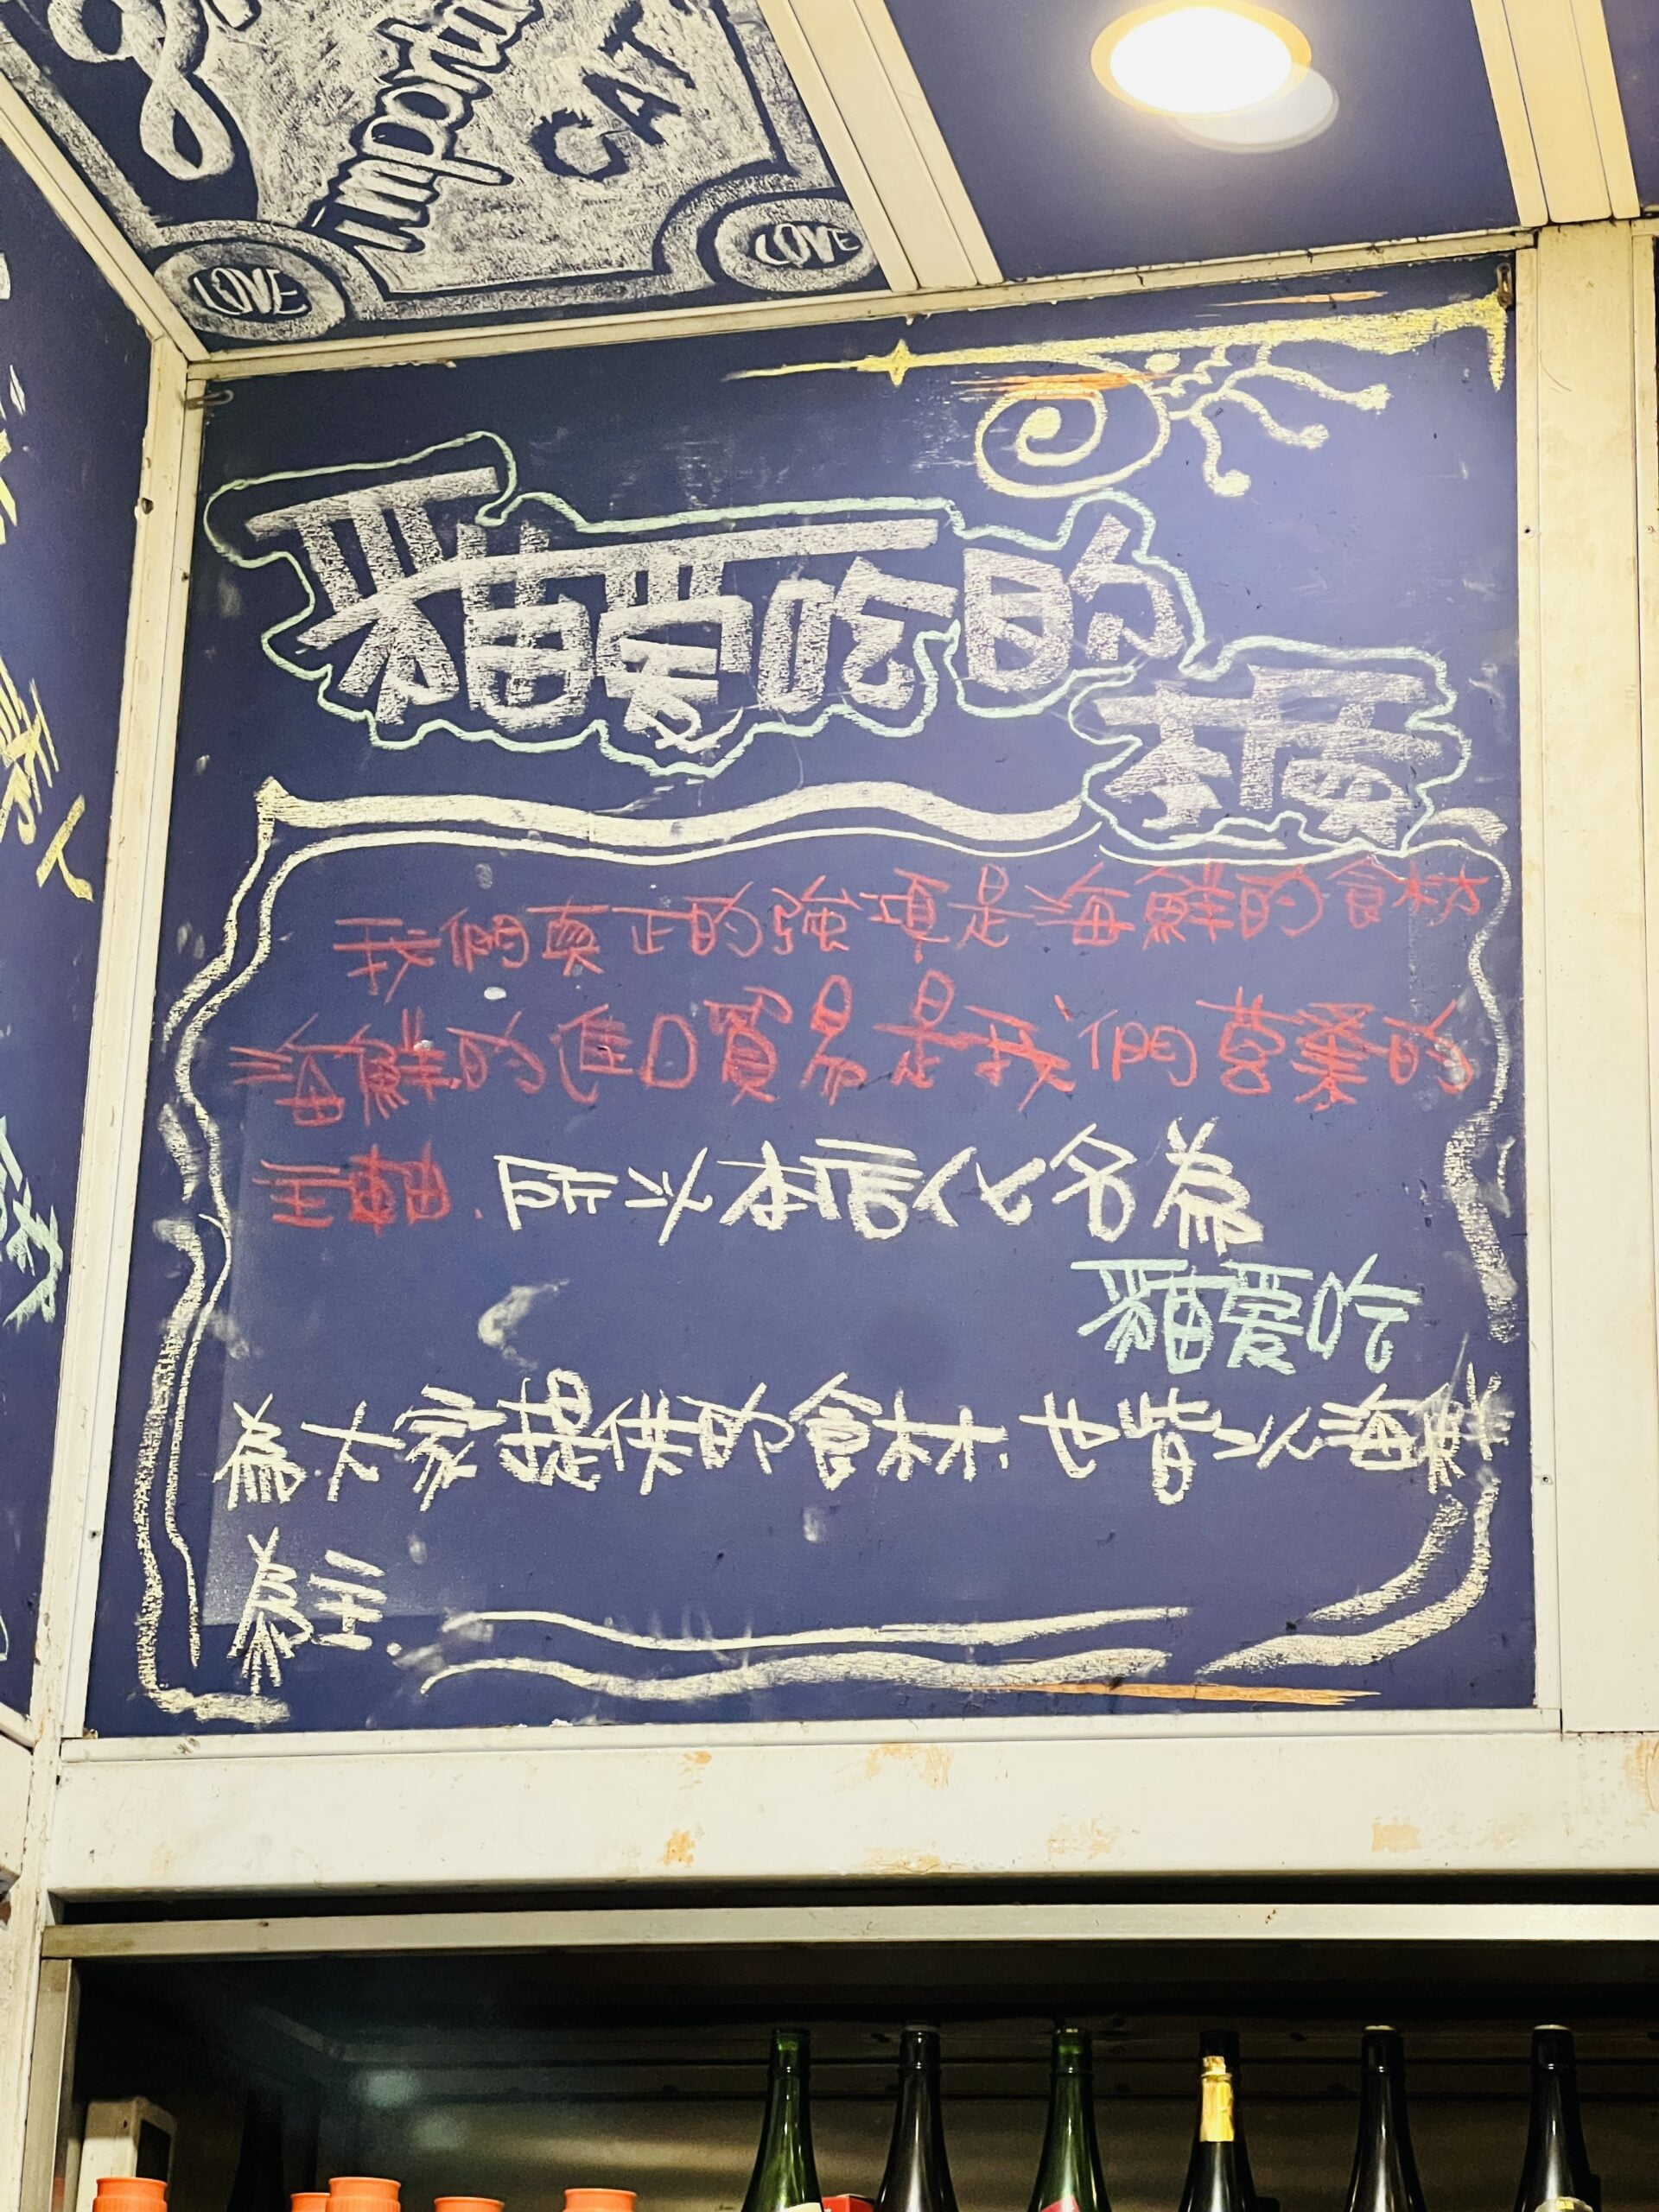 important
CAT
LOVE
LOVE
貓愛吃的
我們真正的強項是海鮮的食材
海鮮的進口貿易是我們營業的
主軸.所以本店化名為
貓愛吃
為大家提供的食材.也皆以海鮮
為主.
人